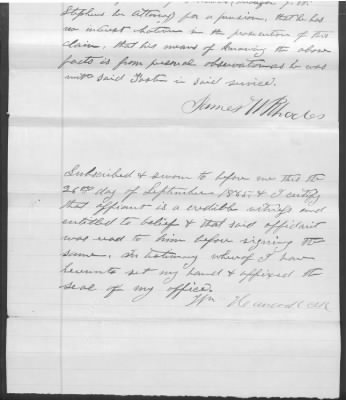 Stephens his Attorney) for a pension, that he has
no interest whatever in the prosecution of this
claim, that his means of knowing the above
facts is from personal observation as he was
with said Foster in said service.
James W Rhodes
Subscribed & sworn to before me this the
26th day of September 1865. & I certify
that affiant is a credible witness and
entitled to belief & that said affidavit
was read to him before signing the
same. In testimony whereof I have
hereunto set my hand & affixed the
seal of my office.
Wm